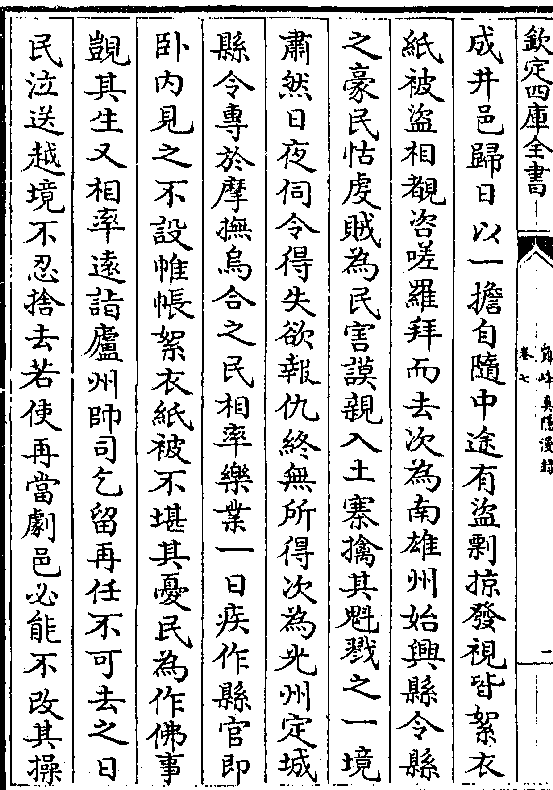 欽定四庫全書
卷七
二
成井邑歸日以一擔自隨中途有盜剽掠發視皆絮衣
紙被盜相覩咨嗟羅拜而去次為南雄州始興縣令縣
之豪民怙虔賊為民害謨親入土寨擒其魁戮之一境
肅然日夜伺令得失欲報仇終無所得次為光州定城
縣令專於摩撫烏合之民相率樂業一日疾作縣官即
卧内見之不設帷帳絮衣紙被不堪其憂民為作佛事
覬其生又相率遠詣廬州帥司乞留再任不可去之日
民泣送越境不忍捨去若使再當劇邑必能不改其操